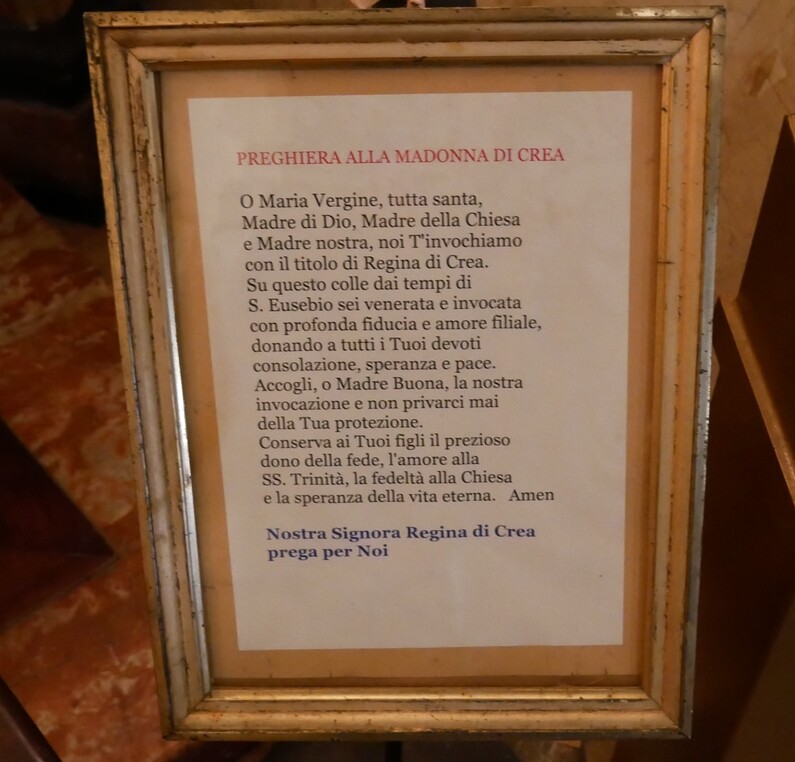 PREGHIERA ALLA MADONNA DI CREA
O Maria Vergine, tutta santa,
Madre di Dio, Madre della Chiesa
e Madre nostra, noi T'invochiamo
con il titolo di Regina di Crea.
Su questo colle dai tempi di
S. Eusebio sei venerata e invocata
con profonda fiducia e amore filiale,
donando a tutti i Tuoi devoti
consolazione, speranza e pace.
Accogli, o Madre Buona, la nostra
invocazione e non privarci mai
della Tua protezione.
Conserva ai Tuoi figli il prezioso
dono della fede, l'amore alla
SS. Trinità, la fedeltà alla Chiesa
e la speranza della vita eterna. Amen
Nostra Signora Regina di Crea
prega per Noi